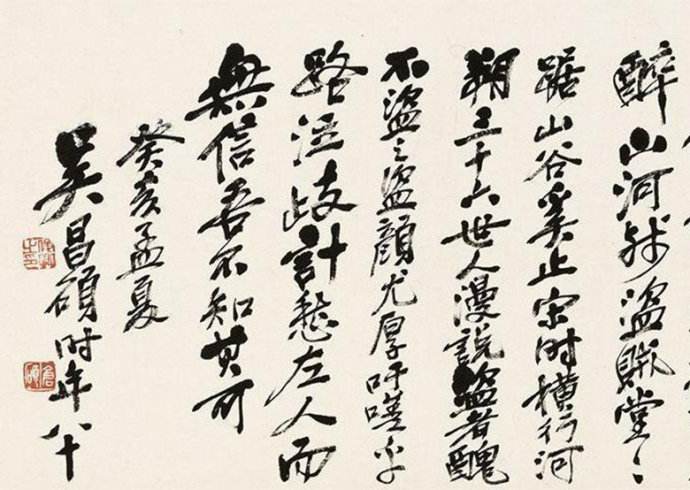 醉山河盜賊堂〻
踞山谷奚止宋时橫行河
朔三十六世人漫說盜者醜
不盜之盜顔尤厚吁嗟乎
路泣歧計愁左人而
無信吾不知其可
癸亥孟夏
吳昌碩时年八十
俊卿之印
倉碩